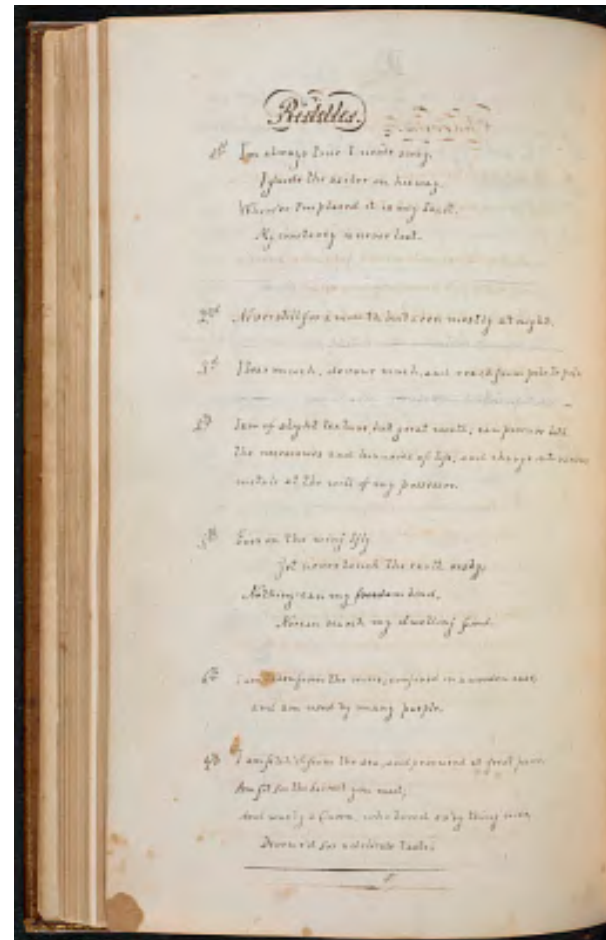 Riddles.
1st I'm always true I never stray,
I guide the sailor on his way,
Where'er I'm placed it is my
My constancy is never lost.
2nd Never still for a month, but seen mostly at night.
3d I bear much, devour much, and reach from pole to pole
4th I am of slight texture, but great worth, can procure both
the necessaries and luxuries of life, and change into various
metals at the will of my possessor.
5th Ever on the wing I fly
Yet never touch the earth or sky,
Nothing can my freedom bind,
No man my dwelling find.
6th I am from the mine, confined in a wooden case,
and am used by many people.
7th I am fetch'd from the sea, and procured at great pain
Am fit for the you meet,
And was by a Queen, who loved thing
Devour'd for a delicate taste.